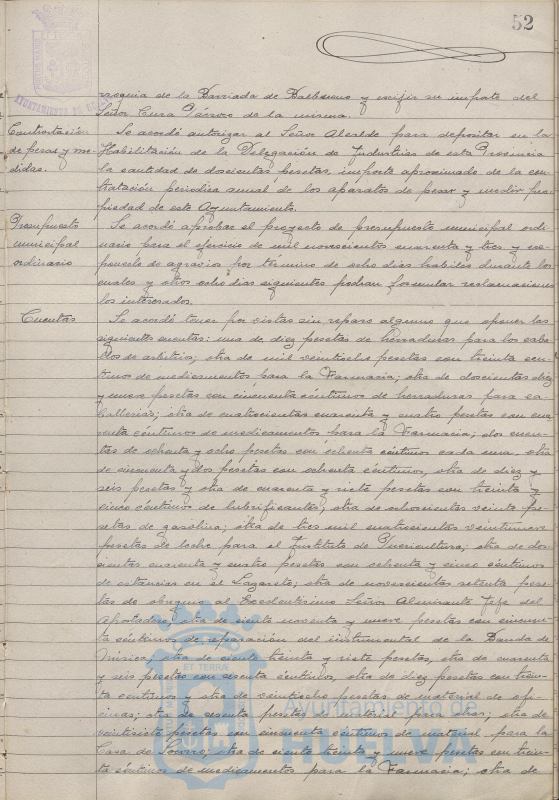 52
AYUNTAMIENTO DE
rroquia de la Barriada de Balbueno y exigir su importe del
Señor Cura Párroco de la misma.
Contrastación de pesas y medidas.
Se acordó autorizar al Señor Alcalde para depositar en la
Habilitación de la Delegación de Industrias de esta Provincia
la cantidad de doscientas pesetas, importe aproximado de la con
trastación periodica anual de los aparatos de pesar y medir pro
piedad de este Ayuntamiento.
Presupuesto
municipal
ordinario
Se acordó aprobar el proyecto de presupuesto municipal ordi
nario para el ejercicio de mil novecientos cuarenta y tres y ex
ponerlo de agravios por término de ocho dias habiles durante los
cuales y otros ocho dias siguientes podran formular reclamaciones
los interesados.
Cuentas
Se acordó tomar por vistas sin reparo alguno que oponer las
siguientes cuentas: una de diez pesetas de herraduras para los caba
llos de arbitrios; otra de mil veintiocho pesetas con treinta cen
timos de medicamentos para la Farmacia; otra de doscientas diez
y nueve pesetas con cincuenta céntimos de herraduras para ca
ballerias; otra de cuatrocientas cuarenta y cuatro pesetas con cua
renta céntimos de medicamentos para la Farmacia; dos cuen
tas de ochenta y ocho pesetas con ochenta céntimos cada una, otra
de cincuenta y dos pesetas con ochenta céntimos, otra de diez y
seis pesetas y otra de cuarenta y siete pesetas con treinta y
cinco céntimos de lubrificantes; otra de ochocientas veinte pe
setas de gasolina; otra de tres mil cuatrocientas veintinueve
pesetas de leche para el Instituto de Puericultura; otra de dos
cientas cuarenta y cuatro pesetas con ochenta y cinco céntimos
de estancias en el Lazareto; otra de novecientas setenta pese
tas de obsequio al Excelentísimo Señor Almirante Jefe del
Apostadero; otra de ciento noventa y nueve pesetas con cincuen
ta céntimos de reparación del instrumental de la Banda de
Música; otra de ciento treinta y siete pesetas, otra de cuarenta
y seis pesetas con sesenta céntimos, otra de diez pesetas con trein
ta céntimos y otra de veintiocho pesetas de material de ofi
cinas; otra de sesenta pesetas de material para obras; otra de
veintisiete pesetas con cincuenta céntimos de material para la
Casa de Socorro; otra de ciento treinta y nueve pesetas con trein
ta céntimos de medicamentos para la Farmacia; otra de
ET TERRÆ
Ayuntamiento de
HUELVA